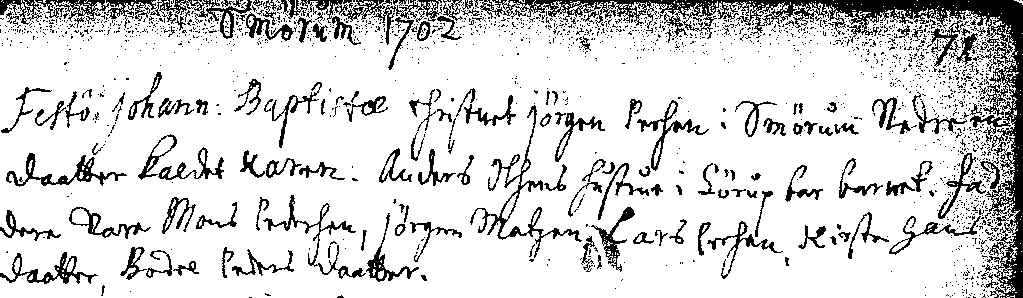 Smörum 1702
71
Festo Johann: Baptistæ Christnet Jörgen Persen i Smörum Nedre en
Daatter kaldet Karen. Anders Ibsens hustrue i Sörup bar barnet. Fad
dere Vare Mons Pedersen, Jörgen Matzen, Lars Persen, Kirste Hans
daatter, Bodel Peders daatter.